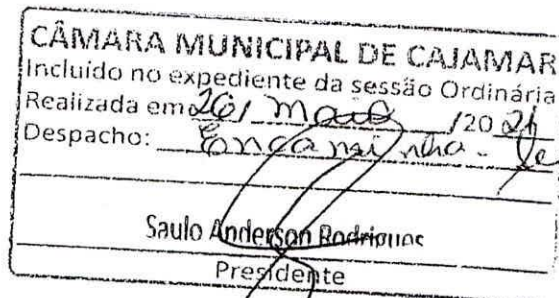 CÂMARA MUNICIPAL DE CAJAMAR
Incluído no expediente da sessão Ordinária
Realizada em 26/ maio /20 21
Despacho: Encaminha-se
Saulo Anderson Rodrigues
Presidente